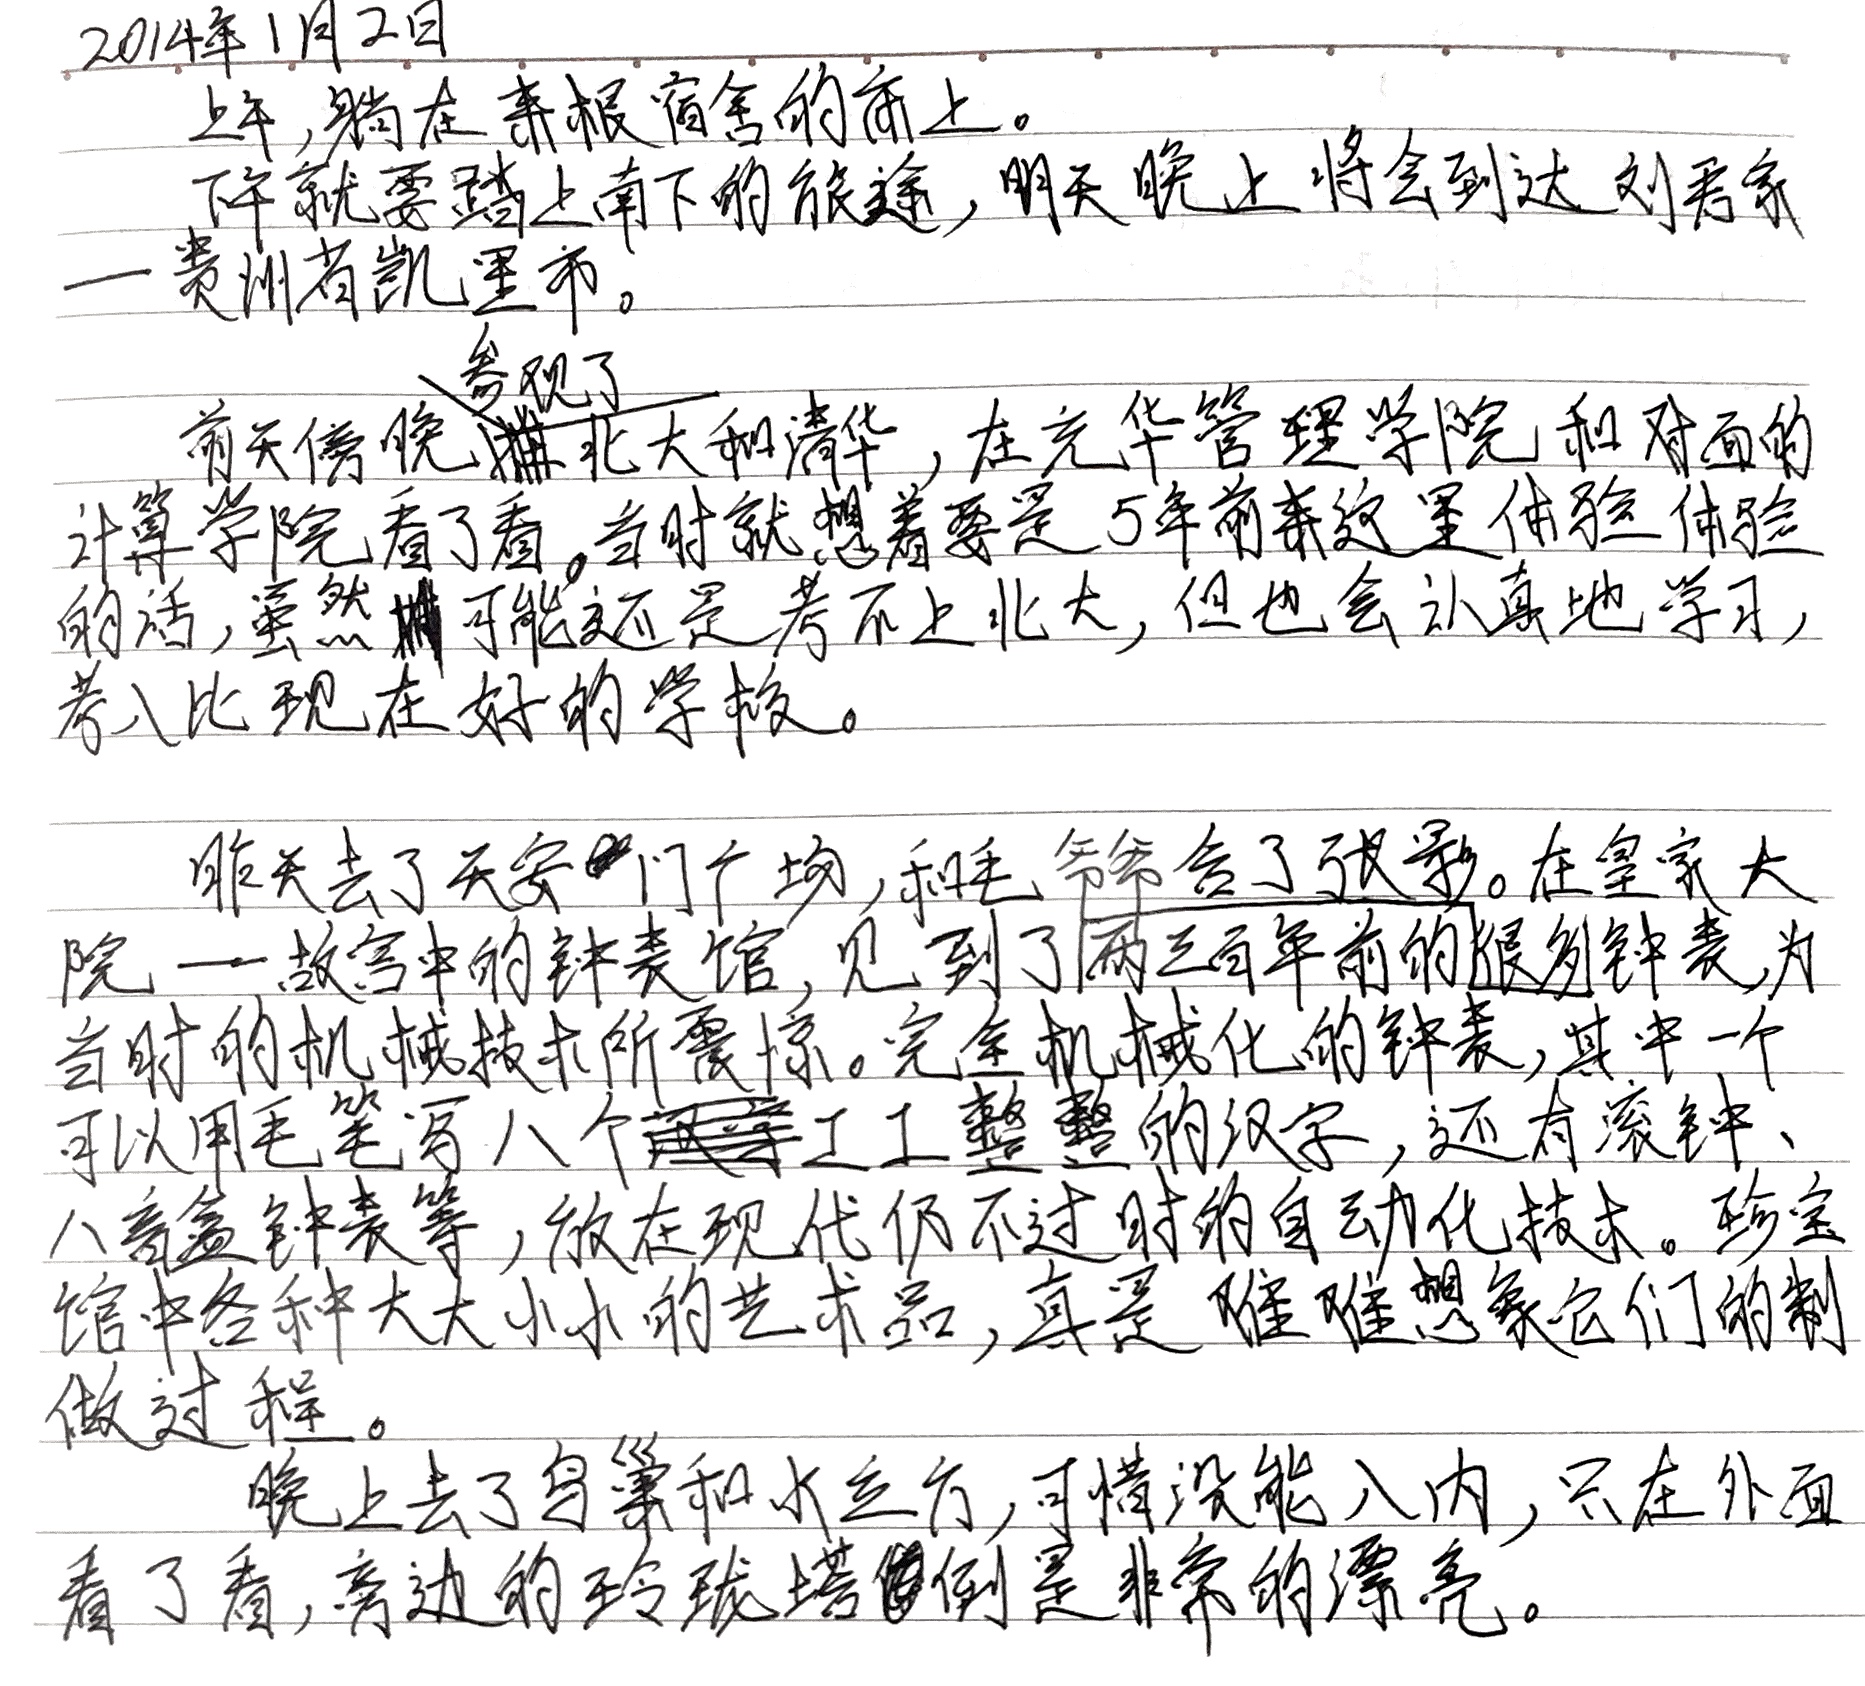 2014年1月2日
上午,躺在来根宿舍的床上。
下午就要踏上南下的旅途,明天晚上将会到达刘君家
—贵州省凯里市。
参观了
前天傍晚北大和清华,在光华管理学院和对面的
计算学院看了看。当时就想着要是5年前来这里体验体验
的话,虽然可能还是考不上北大,但也会认真地学习,
考入比现在好的学校。
昨天去了天安门广场,和毛爷爷合了张影。在皇家大
院—故宫中的钟表馆,见到了两三百年前的很多钟表,为
当时的机械技术所震惊。完全机械化的钟表,其中一个
可以用毛笔写八个工工整整的汉字,还有滚钟、
八音盒钟表等,放在现代仍不过时的自动化技术。珍宝
馆中各种大大小小的艺术品,真是难难想象它们的制
做过程。
晚上去了鸟巢和水立方,可惜没能入内,只在外面
看了看,旁边的玲珑塔倒是非常的漂亮。